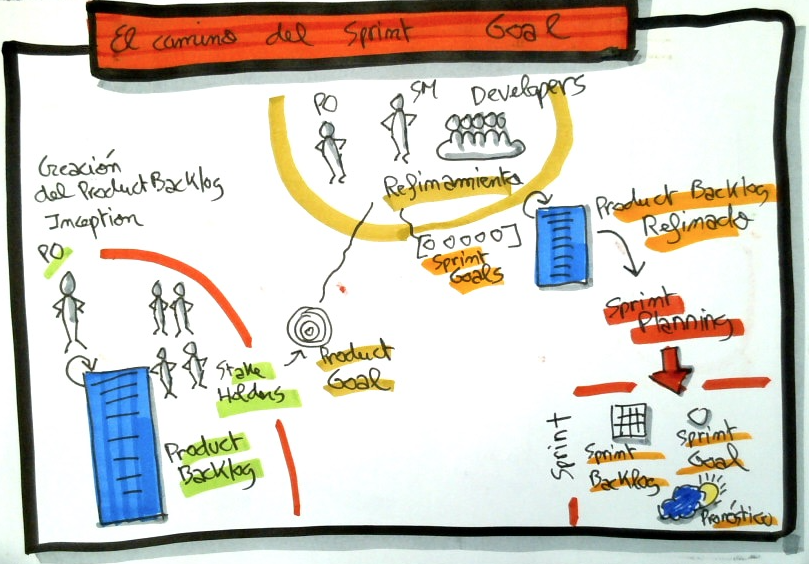 El camino del Sprint Goal
PO
SM
Developers
Refinamiento
Creación
del Product Backlog
Inception
PO
Stake
Holders
Product
Backlog
Product
Goal
[o o o o o]
Sprint
Goals
Product Backlog
Refinado
Sprint
Planning
Sprint
Sprint
Backlog
Sprint
Goal
Pronóstico